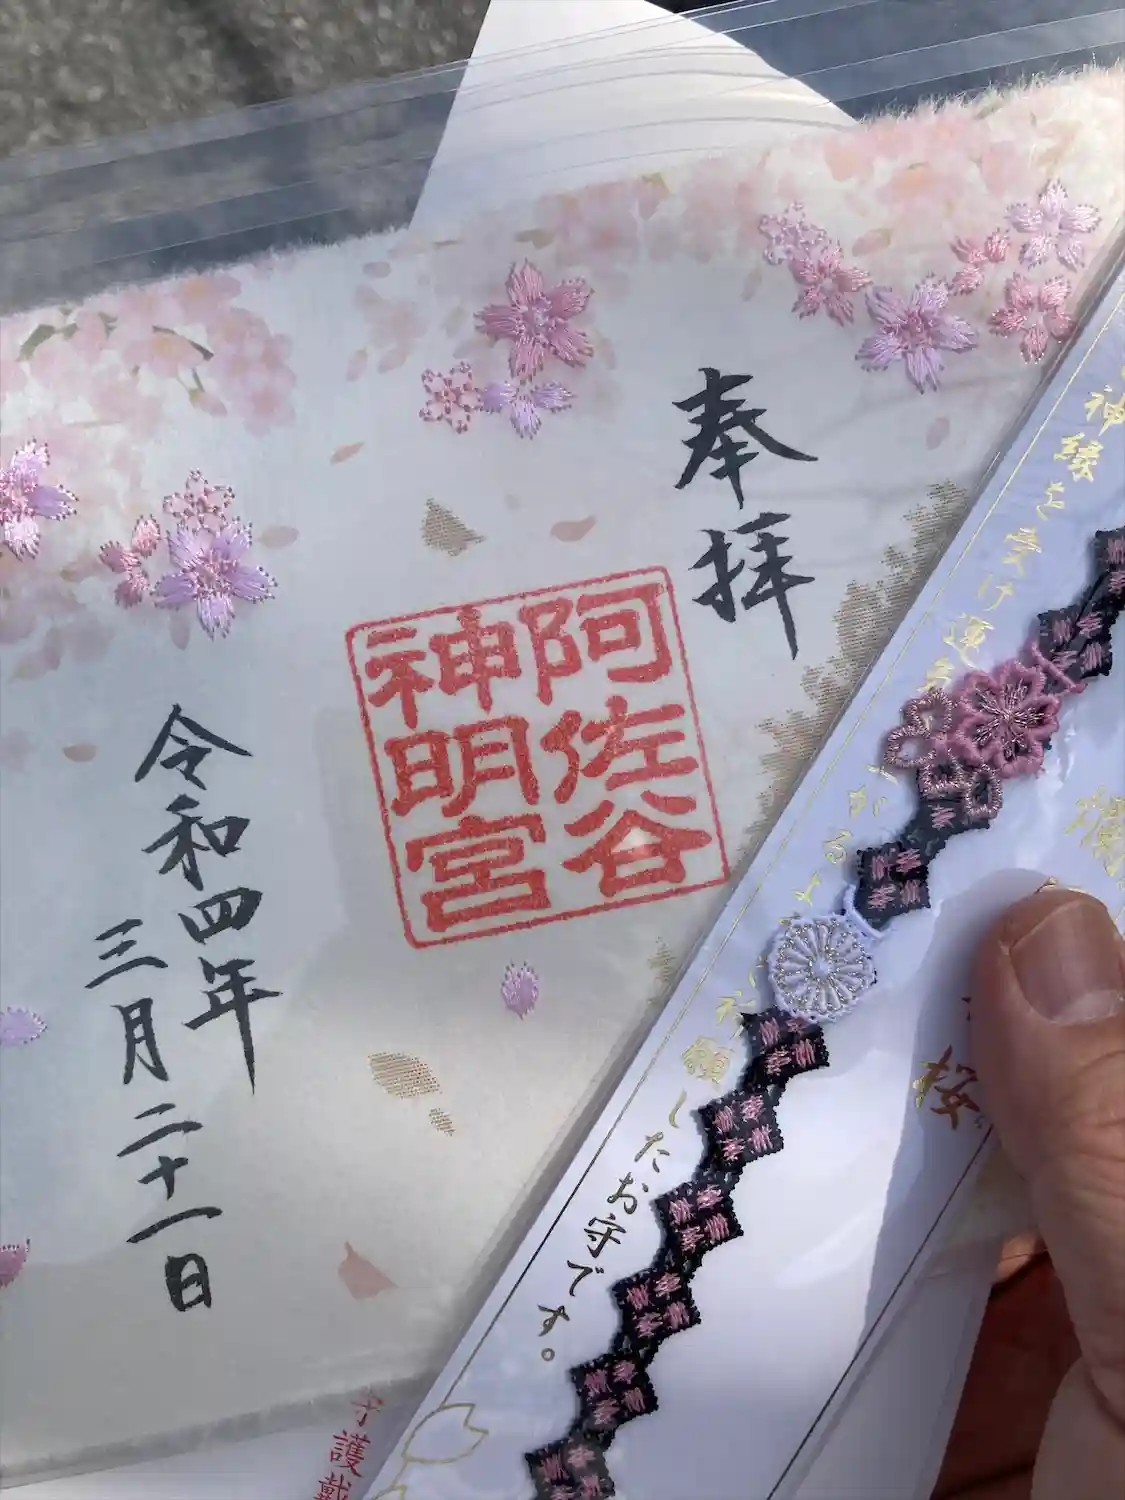 奉拝
阿佐谷
神明宮
令和四年
三月二十一日
神縁を受け運気
がるよ
祈願したお守です。
桜
守護